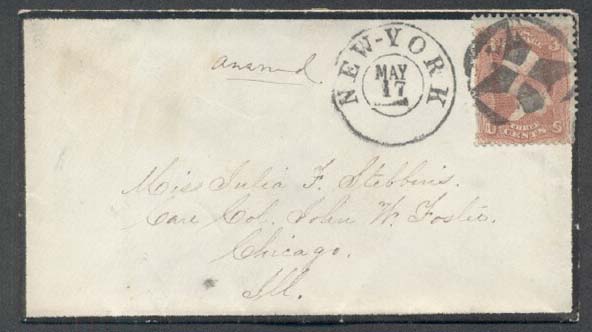 Answered.
NEW-YORK
MAY
17
THREE
CENTS
U S
Miss Julia F. Stebbins.
Care Col. John W. Foster.
Chicago.
Ill.